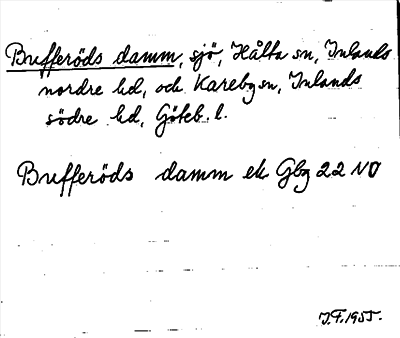 Bufferöds damm, sjö, Hålta sn, Inlands
nordre hd, och Kareby sn, Inlands
södre hd, Göteb. l.
Bufferöds damm ek Gbg 22 NO
J.F. 1955.